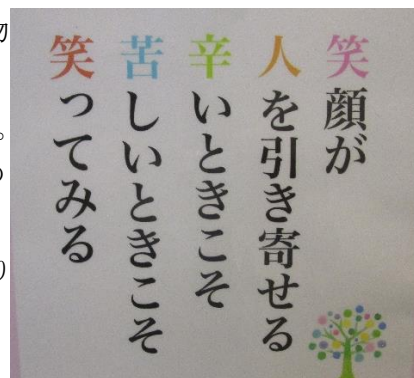 笑顔が
人を引き寄せる
辛いときこそ
苦しいときこそ
笑ってみる